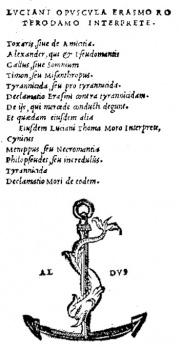 LVCIANI OPVSCVLA ERASMO RO
TERODAMO INTERPRETE.
Toxaris, siue de Amicitia.
Alexander, qui & Pseudomantis
Gallus, siue Somnium
Timon, seu Misanthropus.
Tyrannicida, seu pro tyrannicida.
Declamatio Erasmi contra tyrannicidam.
De ijs, qui mercede conducti degunt.
Et quædam eiusdem alia
Eiusdem Luciani Thoma Moro Interprete,
Cynicus
Menippus, seu Necromantia
Philopseudes, seu incredulus.
Tyrannicida
Declamatio Mori de eodem.
AL DVS